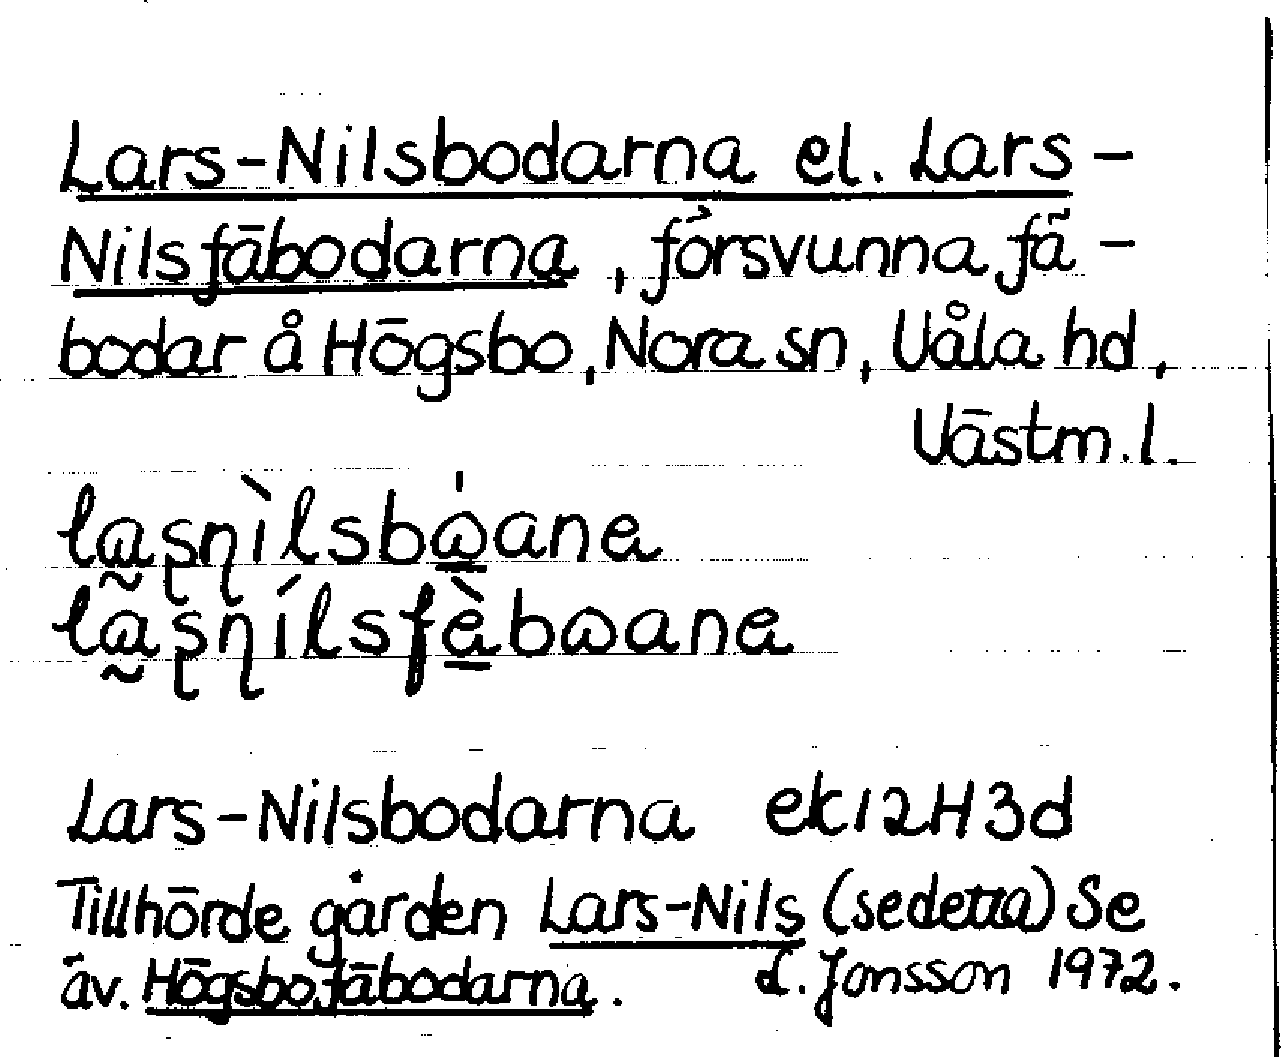 Lars-Nilsbodarna el. Lars-
Nilsfäbodarna, försvunna fä-
bodar å Högsbo, Nora sn, Våla hd,
Västm. l.
Lars-Nilsbodarna ek 12H3d
Tillhörde gården Lars-Nils (se detta) Se
äv. Högsbofäbodarna. L. Jonsson 1972.